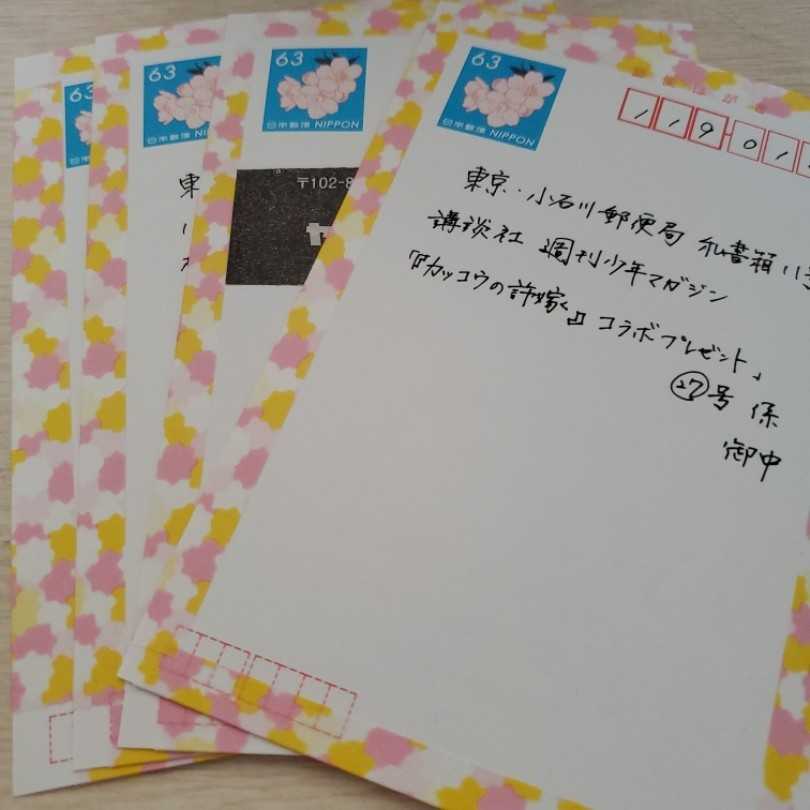 63
日本郵便 NIPPON
63
日本郵便 NIPPON
63
日本郵便 NIPPON
63
日本郵便
〒102-8
ヤ
東
119-01
東京・小石川郵便局 私書箱11号
講談社 週刊少年マガジン
「『カッコウの許嫁』コラボプレゼント」
㉗号 係
御中